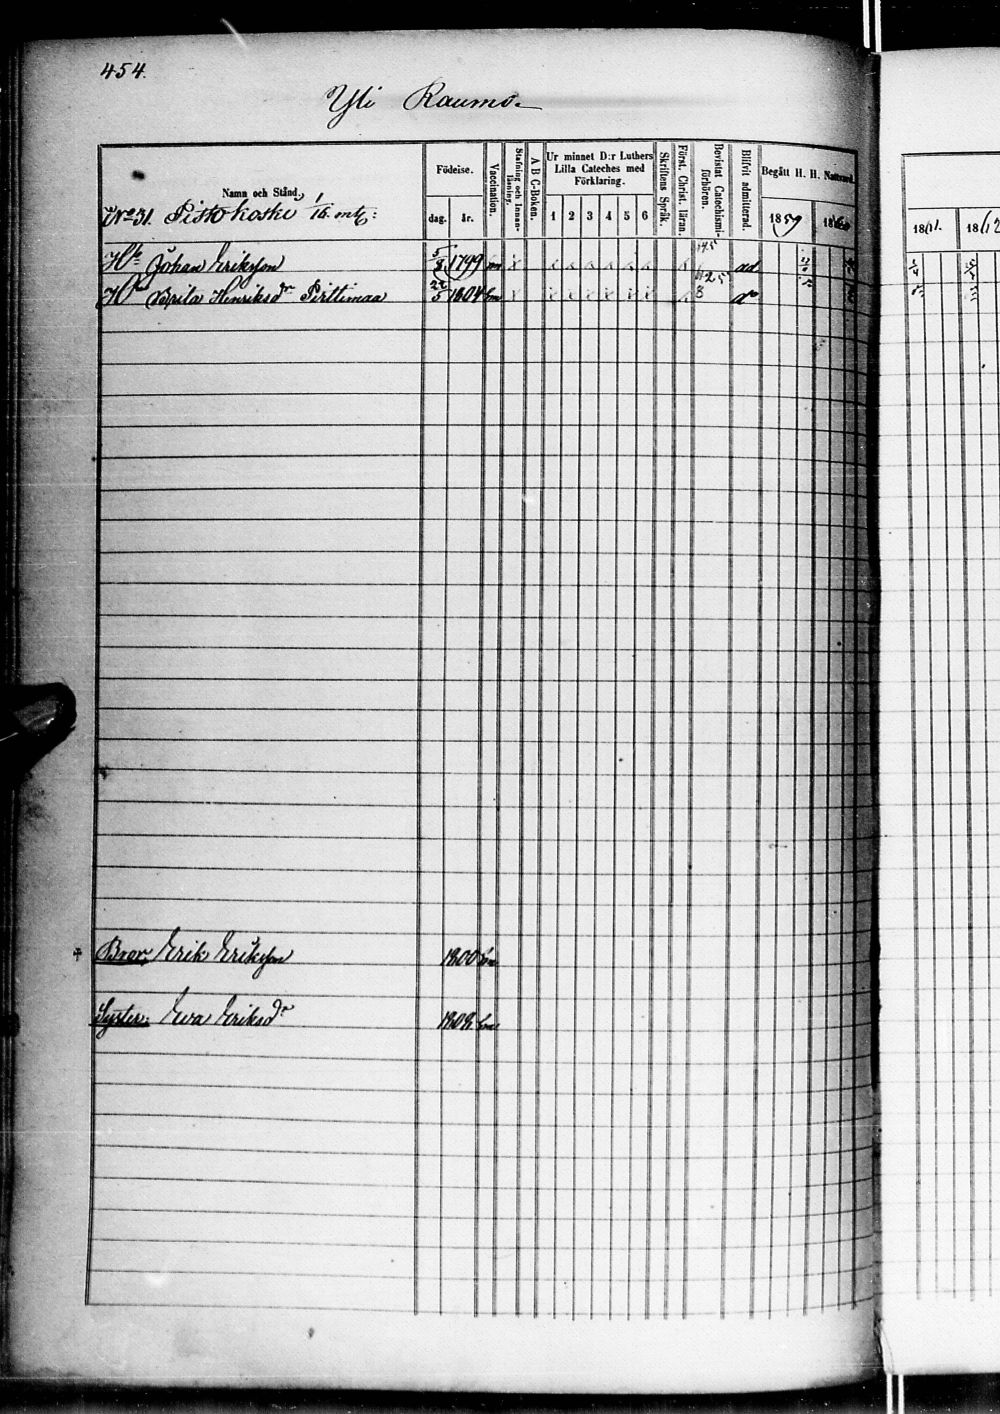 454.
Yli Raumo.
Namn och Stånd,
Födelse.
Vaccination.
Stafning och Innanläsning.
A B C-Boken.
Ur minnet D:r Luthers Lilla Cateches med Förklaring.
Skriftens Språk.
Först. Christ. läran.
Bevistat Catechismiförhören.
Blifvit admitterad.
Begått H. H. Nattvard.
No 31. Pistokoski, 1/6 mtl:
dag. år. 1 2 3 4 5 6 1859 1860 1861. 1862
Hb Johan Eriksson 5/8 1799 ad
Hu Brita Henriksdr Pirttimaa 22/5 1804 do
Bror, Erik Eriksson 1800
Syster: Eva Eriksdr 1808